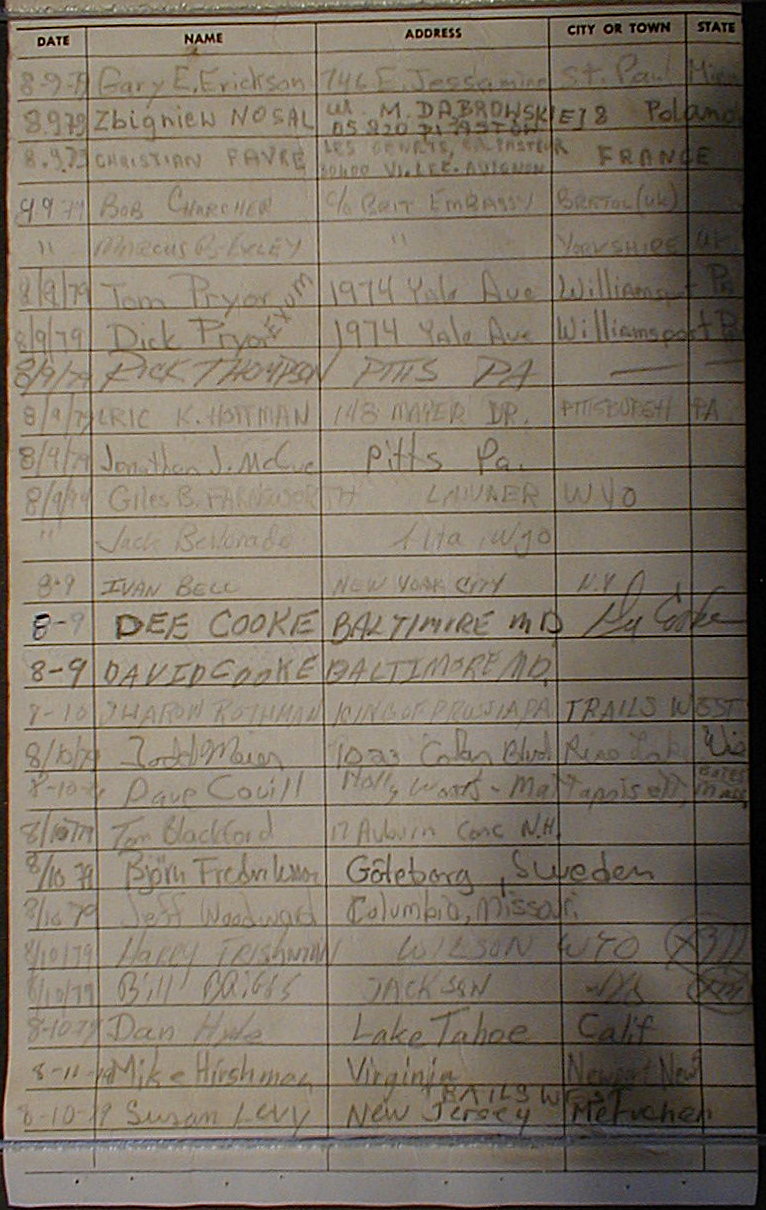 DATE NAME ADDRESS CITY OR TOWN STATE
8-9-79 Gary E. Erickson 746 E. Jessamine St. Paul Minn
8.9.79 Zbigniew NOSAL ul. M. DABROWSKIEJ 8 Poland
05820 PIASTOW
8.9.79 CHRISTIAN FAVRE LES FRANCE
VILLE. AVIGNON
9 9 79 BOB CHURCHER C/o BRIT EMBASSY BRISTOL (UK)
" MARCUS " YORKSHIRE UK
8/9/79 Tom Pryor EXUM 1974 Yale Ave Williamsport Pa
8/9/79 Dick Pryor 1974 Yale Ave Williamsport Pa
8/9/79 RICK THOMPSON PITTS PA — —
8/9/79 ERIC K. HOFFMAN 148 MAYER DR. PITTSBURGH PA.
8/9/79 Jonathan J. McCue Pitts Pa.
8/9/79 Giles B. FARNSWORTH LANDER WYO
" Jack Alta, Wyo
8-9 IVAN BELL NEW YORK CITY N.Y
8-9 DEE COOKE BALTIMIRE MD Dee Cooke
8-9 DAVID COOKE BALTIMORE MD.
8-10 SHARON ROTHMAN KING OF PRUSSIA PA TRAILS WEST
8/10/79 Todd Blvd Wis
8-10-79 Dave Covill Holly Woods - Mattapoisett, MASS
8/10/79 Tom Blackford 17 Auburn Conc N.H.
8/10 79 Björn Fredriksson Göteborg, Sweden
8/10 79 Jeff Woodward Columbia, Missouri
8/10/79 HARRY FRISHMAN WILSON WYO
8/10/79 Bill BRIGGS JACKSON WYO
8-10-79 Dan Hyde Lake Tahoe Calif
8-11-79 Mike Hirshman Virginia Newport News
TRAILS WEST
8-10-79 Susan Levy New Jersey Metuchen